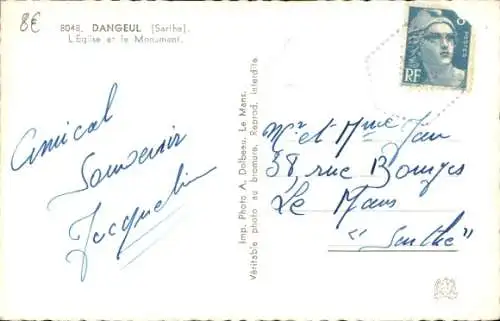 8€
8048. DANGEUL (Sarthe).
L'Eglise et le Monument.
Amical
Souvenir
Jacqueline
Imp. Photo A. Dolbeau, Le Mans.
Véritable photo au bromure. Reprod. interdite
POSTES
RF
Mr et Mme Jan
38, rue Bourges
Le Mans
"Sarthe"